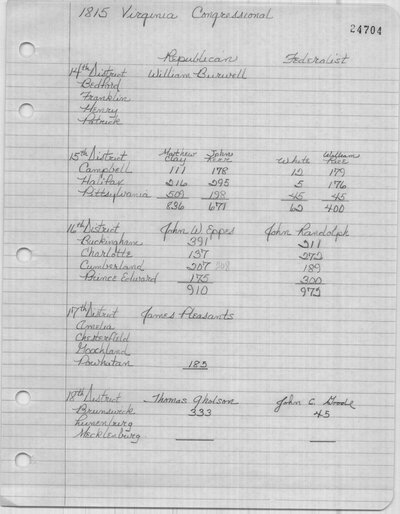 1815 Virginia Congressional
24704
Republican Federalist
14th District William Burwell
Bedford
Franklin
Henry
Patrick
15th District Matthew Clay John Kerr White William
Campbell 111 178 12 179
Halifax 216 295 5 176
Pittsylvania 509 198 45 45
836 671 62 400
16th District John W. Eppes John Randolph
Buckingham 391 211
Charlotte 137 272
Cumberland 207 208 189
Prince Edward 175 300
910 972
17th District James Pleasants
Amelia
Chesterfield
Goochland
Powhatan 185
18th District Thomas Gholson John C. Goode
Brunswick 333 45
Lunenburg
Mecklenburg